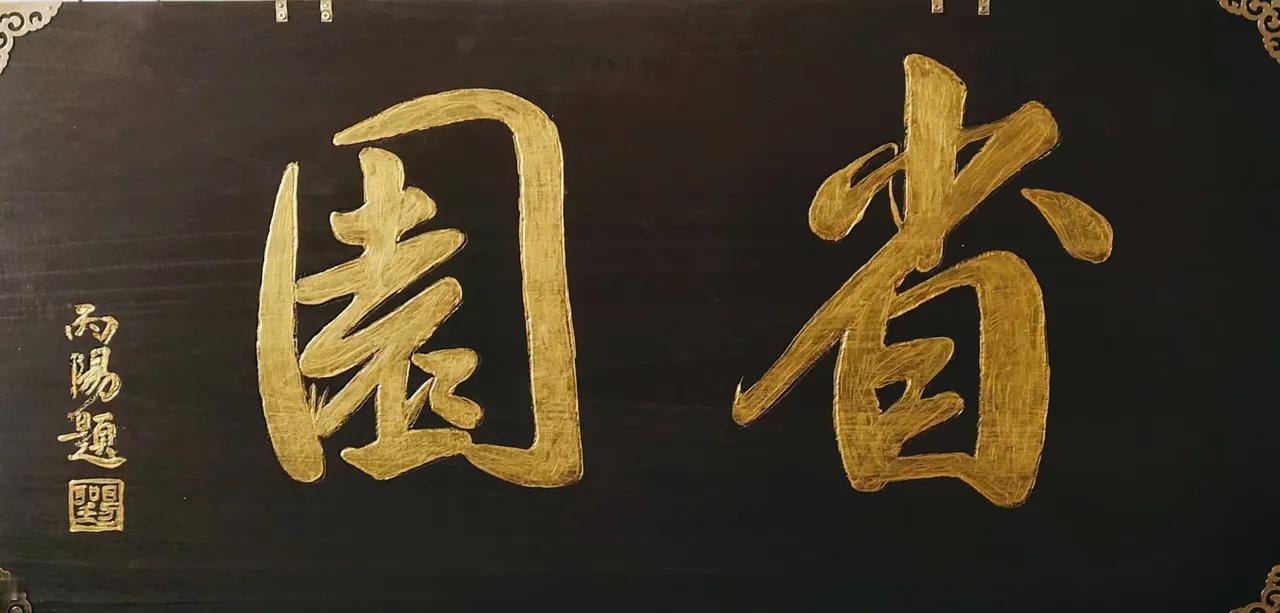 省園
丙陽題